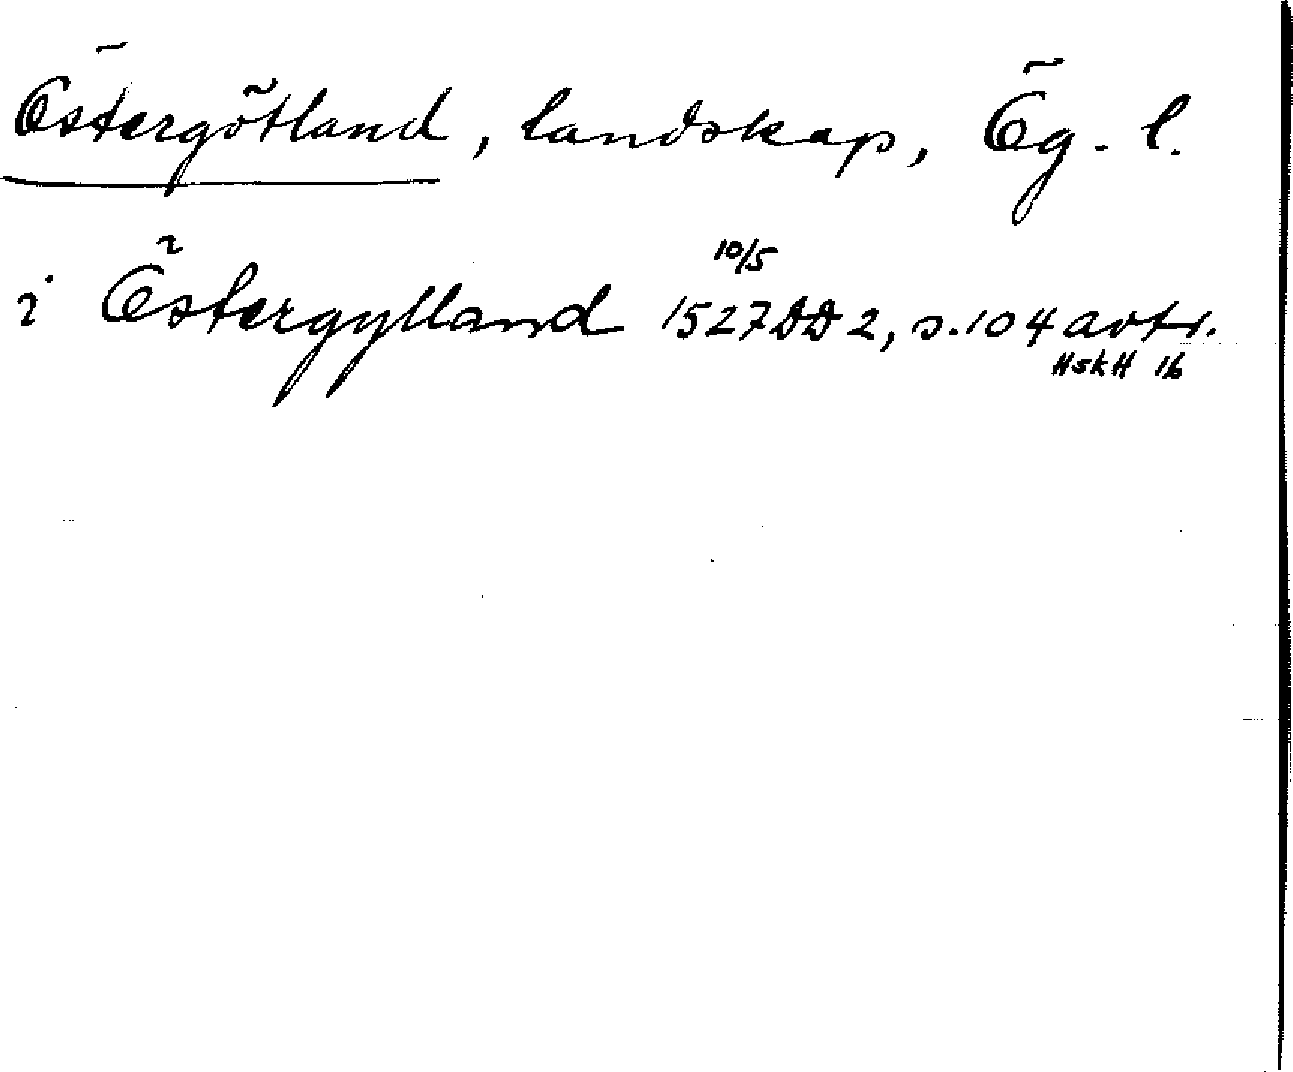 Östergötland, landskap, Ög. l.
i Östergylland 10/5 1527 DD 2, s. 104 avtr.
HskH 16